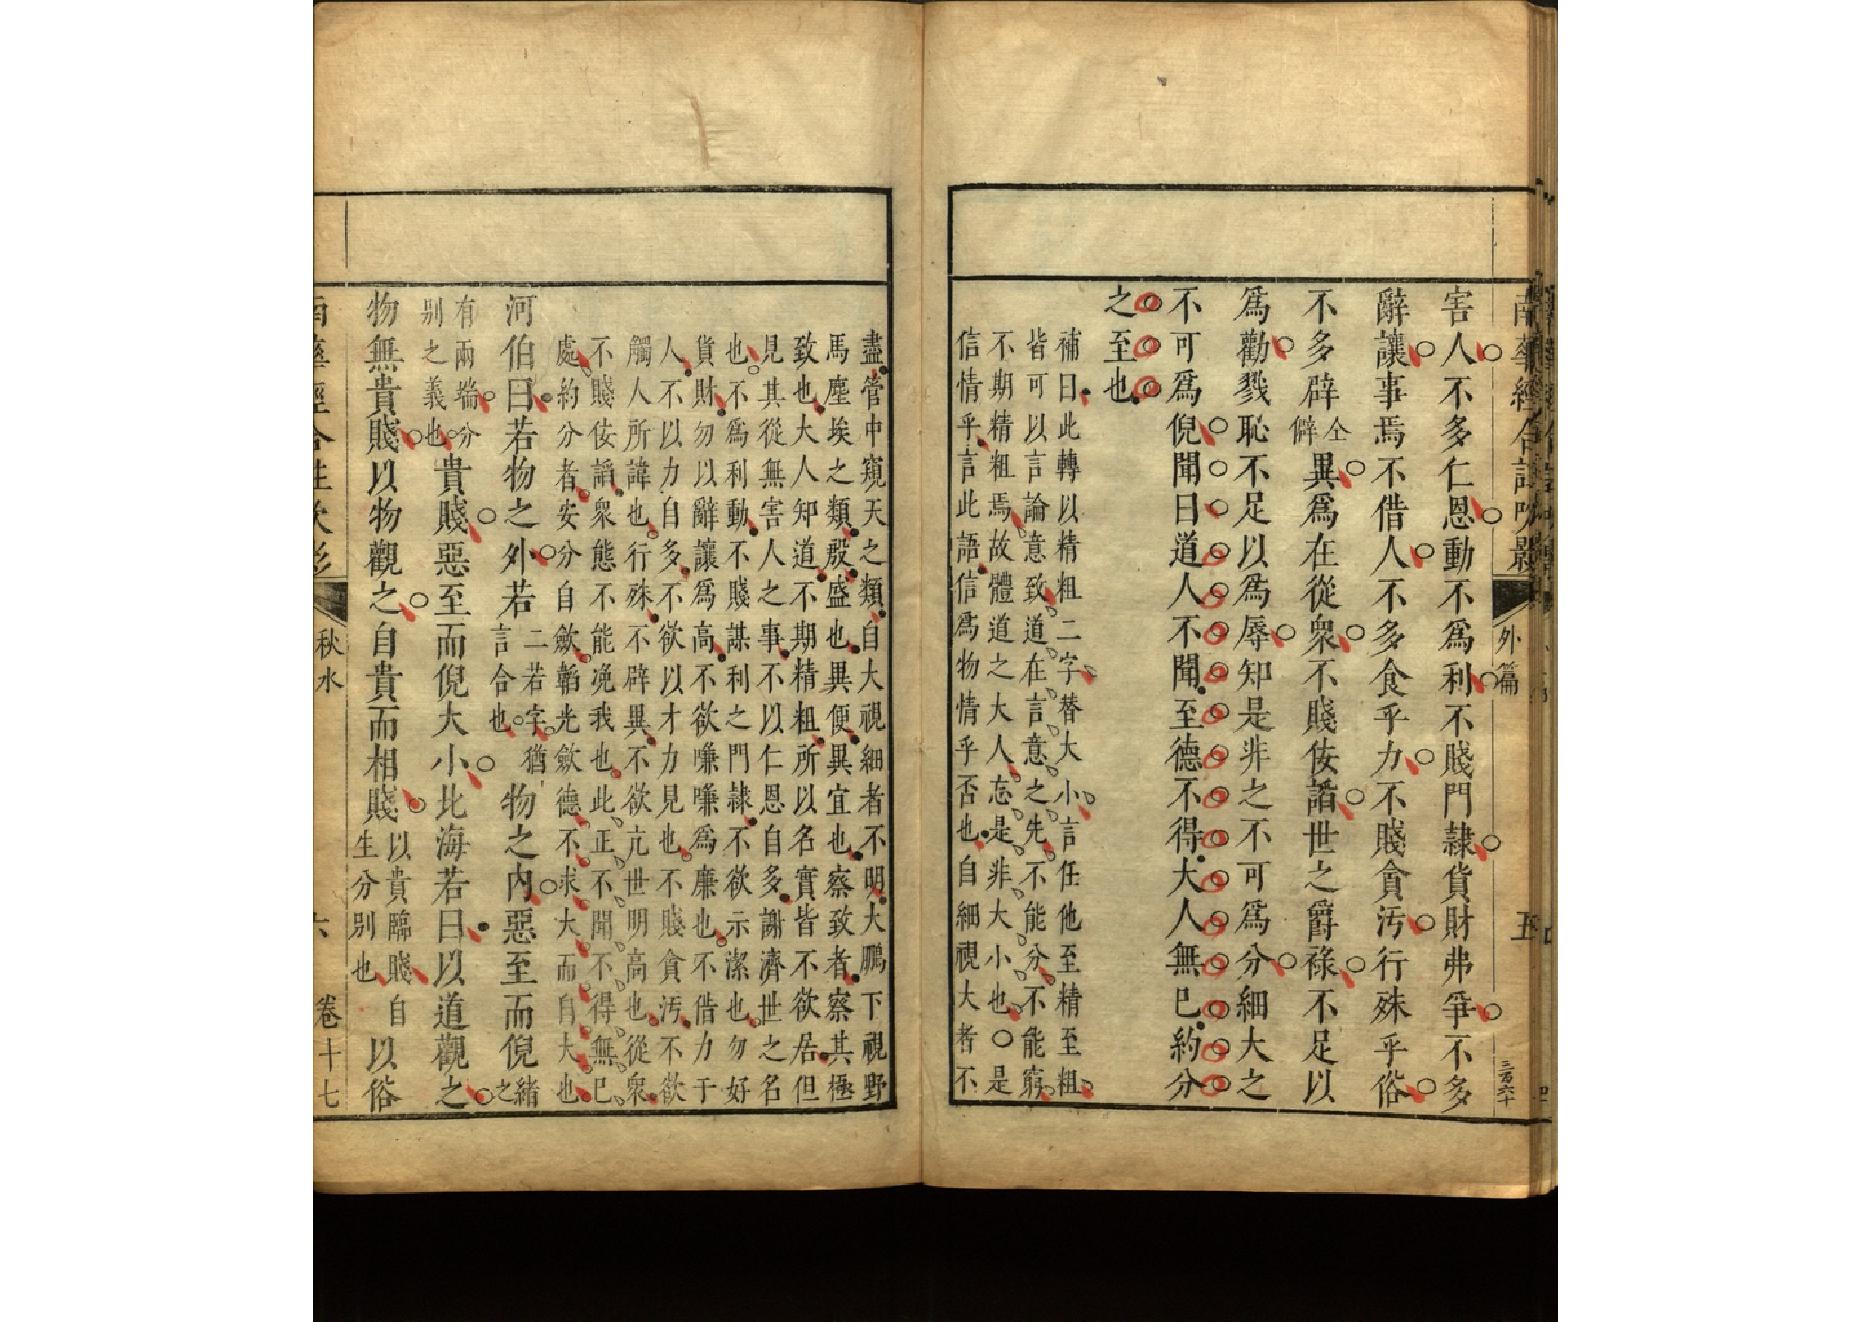 南華經合註吹影 外篇 五 三百六十
害人不多仁恩動不爲利不賤門隷貨財弗爭不多
辭讓事焉不借人不多食乎力不賤貪汚行殊乎俗
不多辟仝僻異爲在從衆不賤佞謟世之爵祿不足以
爲勸戮恥不足以爲辱知是非之不可爲分細大之
不可爲倪聞曰道人不聞至德不得大人無已約分
之至也
補曰此轉以精粗二字替大小言任他至精至粗
皆可以言論意致道在言意之先不能分不能窮
不期精粗焉故體道之大人忘是非大小也○是
信情乎言此語信爲物情乎否也自細視大者不
盡管中窺天之類自大視細者不明大鵬下視野
馬塵埃之類殷盛也異便異宜也察致者察其極
致也大人知道不期精粗所以名實皆不欲居但
見其從無害人之事不以仁恩自多謝濟世之名
也不爲利動不賤謀利之門隷不欲示潔也勿好
貨財勿以辭讓爲高不欲嗛嗛爲廉也不借力于
人不以力自多不欲以才力見也不賤貪汚不欲
觸人所諱也行殊不辟異不欲亢世明高也從衆
不賤佞謟衆態不能浼我也此正不聞不得無已
處約分者安分自歛韜光歛德不求大而自大也
河伯曰若物之外若二若字猶言合也物之内惡至而倪緒之
有兩端分別之義也貴賤惡至而倪大小北海若曰以道觀之
物無貴賤以物觀之自貴而相賤以貴臨賤自生分別也以俗
秋水 六 卷十七